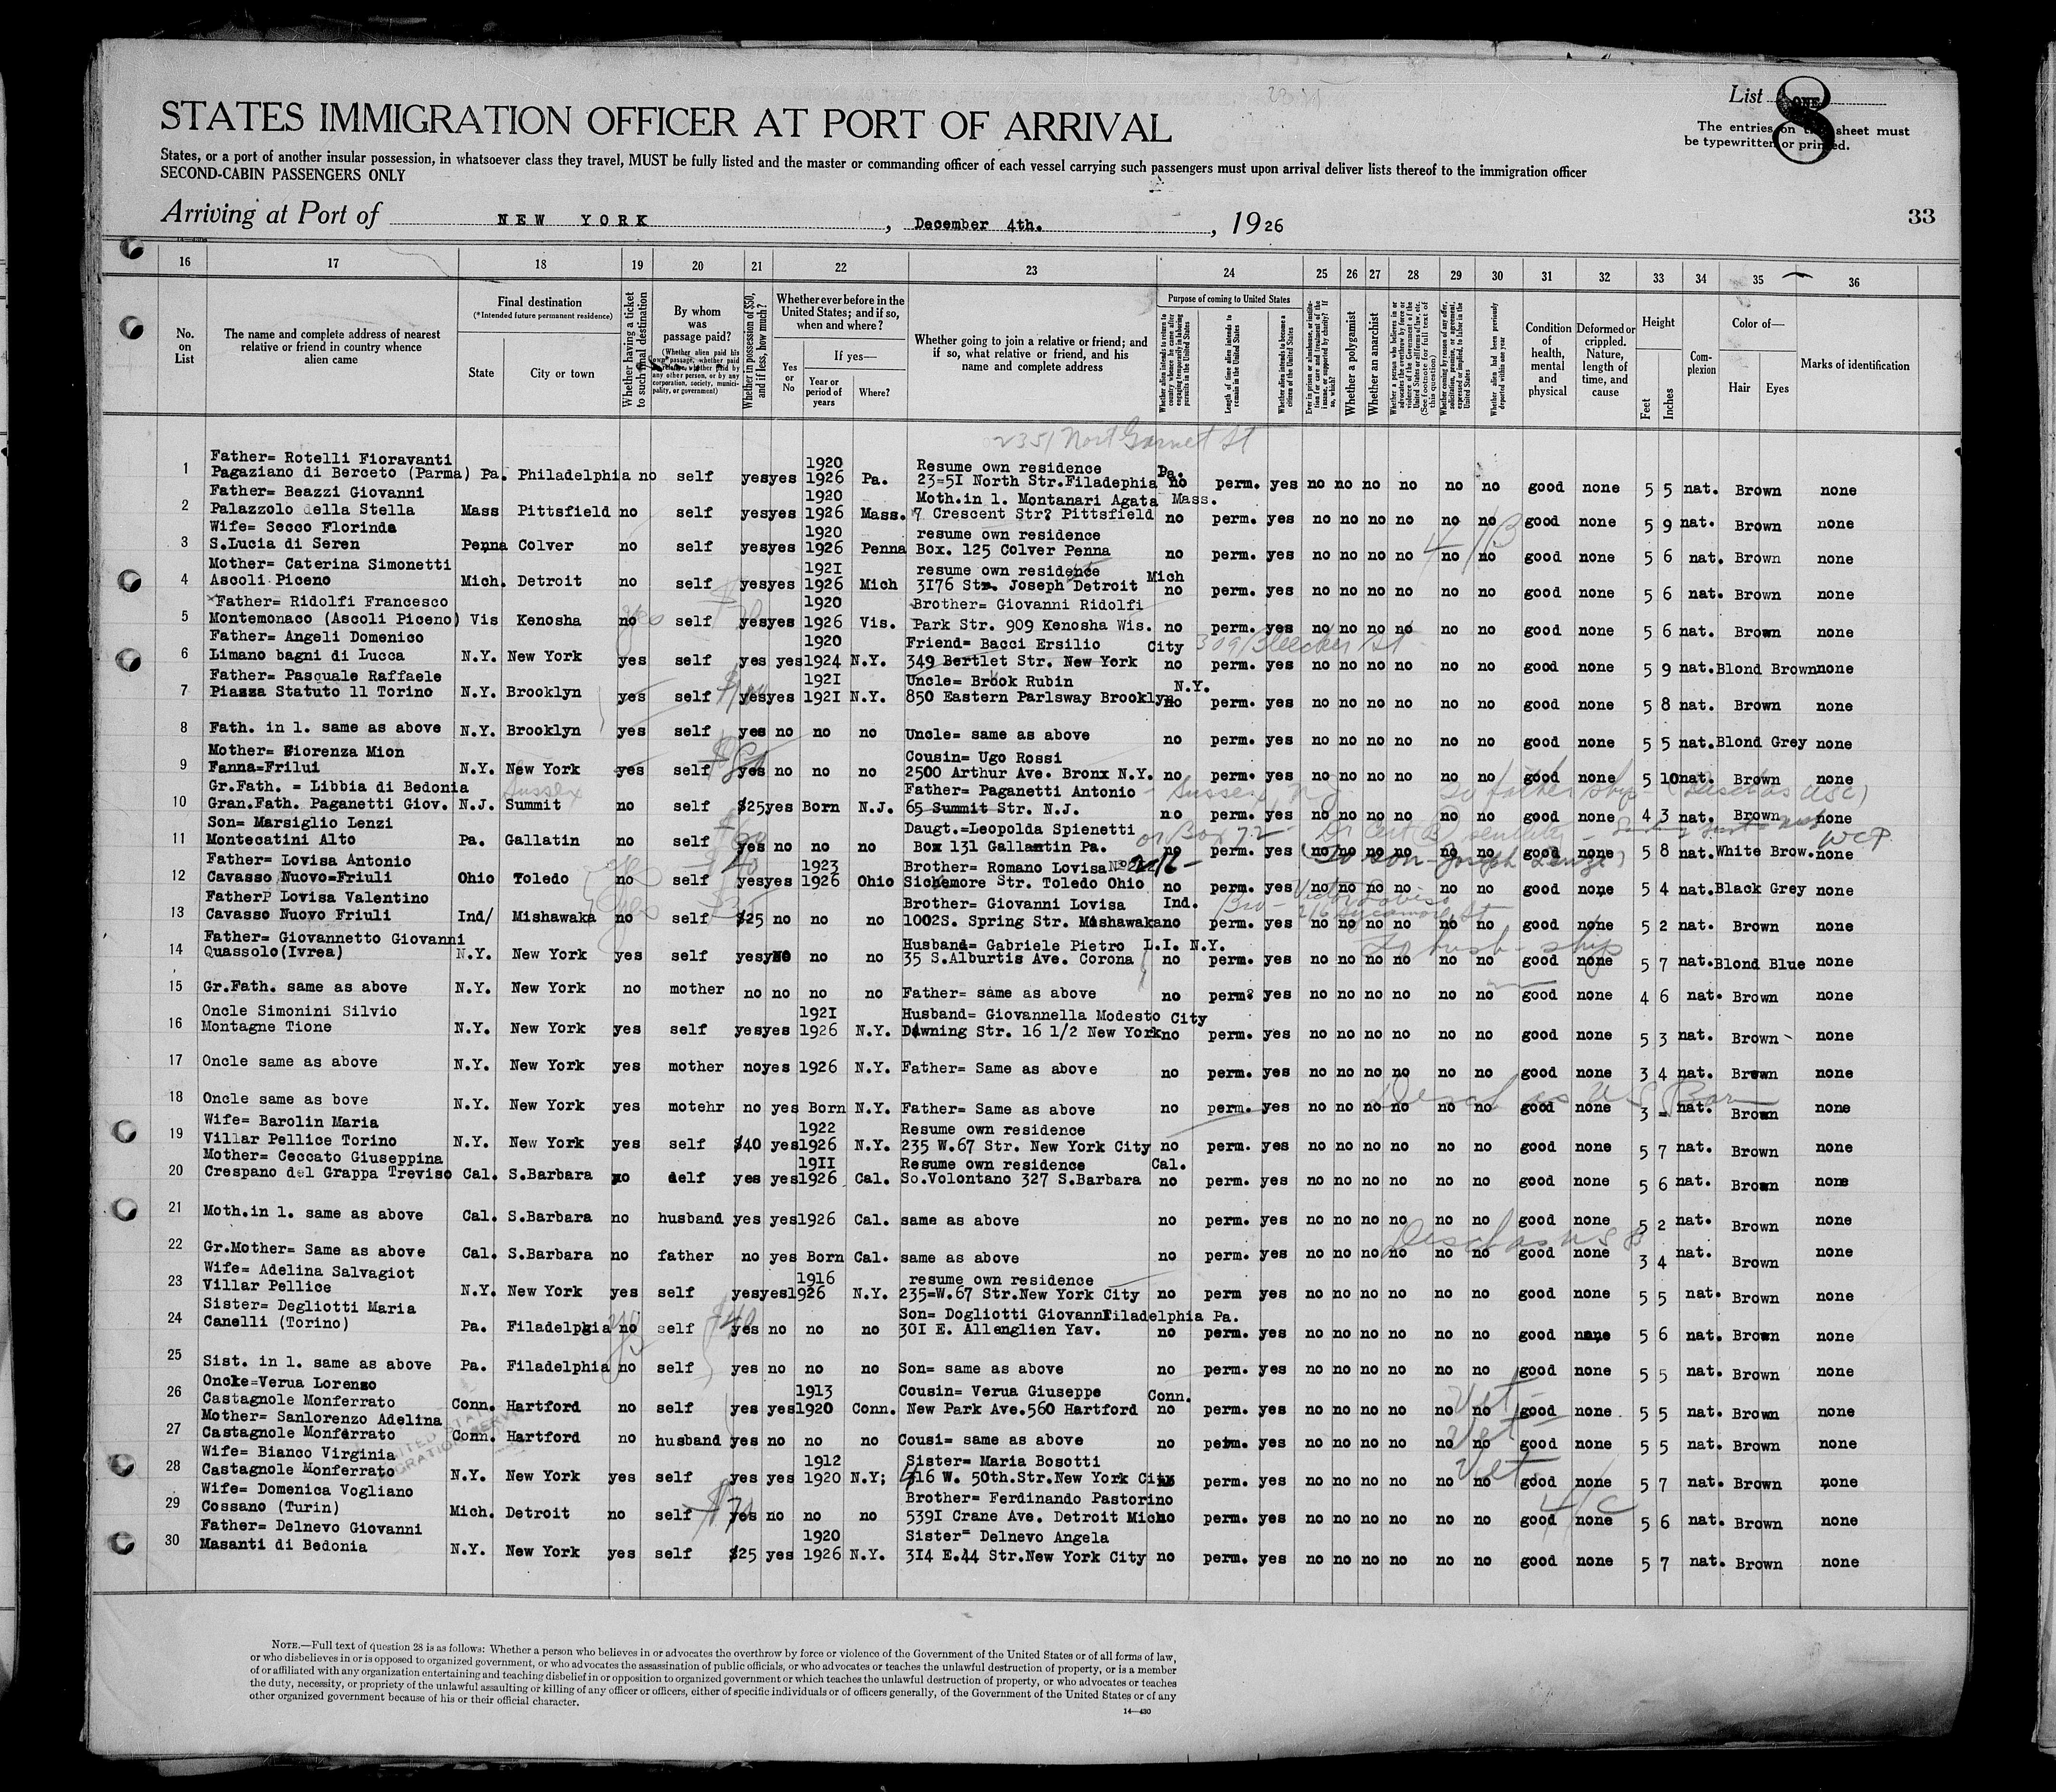 List ONE 8
The entries on this sheet must
be typewritten or printed.
STATES IMMIGRATION OFFICER AT PORT OF ARRIVAL
States, or a port of another insular possession, in whatsoever class they travel, MUST be fully listed and the master or commanding officer of each vessel carrying such passengers must upon arrival deliver lists thereof to the immigration officer
SECOND-CABIN PASSENGERS ONLY
Arriving at Port of NEW YORK, December 4th., 1926
33
16 17 18 19 20 21 22 23 24 25 26 27 28 29 30 31 32 33 34 35 36
No. on List
The name and complete address of nearest relative or friend in country whence alien came
Final destination
(*Intended future permanent residence)
State
City or town
Whether having a ticket to such final destination
By whom was passage paid?
(Whether alien paid his own passage, whether paid by relative, whether paid by any other person, or by any corporation, society, municipality, or government)
Whether in possession of $50, and if less, how much?
Whether ever before in the United States; and if so, when and where?
Yes or No
If yes—
Year or period of years
Where?
Whether going to join a relative or friend; and if so, what relative or friend, and his name and complete address
Purpose of coming to United States
Whether alien intends to return to country whence he came after engaging temporarily in laboring pursuits in the United States
Length of time alien intends to remain in the United States
Whether alien intends to become a citizen of the United States
Whether a polygamist
Whether an anarchist
(See footnote for full text of this question)
Whether alien had been previously deported within one year
Condition of health, mental and physical
Deformed or crippled. Nature, length of time, and cause
Height
Feet
Inches
Complexion
Color of—
Hair
Eyes
Marks of identification
2351 Nort Garnet St
1 Father= Rotelli Fioravanti 1920 Resume own residence Pa.
Pagaziano di Berceto (Parma) Pa. Philadelphia no self yes yes 1926 Pa. 23=5I North Str.Filadephia no perm. yes no no no no no no good none 5 5 nat. Brown none
2 Father= Beazzi Giovanni 1920 Moth.in l. Montanari Agata Mass.
Palazzolo della Stella Mass Pittsfield no self yes yes 1926 Mass. 7 Crescent Str? Pittsfield no perm. yes no no no no no no good none 5 9 nat. Brown none
3 Wife= Secco Florinda 1920 resume own residence
S.Lucia di Seren Penna Colver no self yes yes 1926 Penna Box. 125 Colver Penna no perm. yes no no no no no no good none 5 6 nat. Brown none
4 Mother= Caterina Simonetti 192I resume own residence Mich
Ascoli Piceno Mich. Detroit no self yes yes 1926 Mich 3I76 Str. Joseph Detroit no perm. yes no no no no no no good none 5 6 nat. Brown none
5 Father= Ridolfi Francesco 1920 Brother= Giovanni Ridolfi
Montemonaco (Ascoli Piceno) Vis Kenosha no self yes yes 1926 Vis. Park Str. 909 Kenosha Wis. no perm. yes no no no no no no good none 5 6 nat. Brown none
6 Father= Angeli Domenico 1920 Friend= Bacci Ersilio City 309 Bleecker St
Limano bagni di Lucca N.Y. New York yes self yes yes 1924 N.Y. 349 Bertlet Str. New York no perm. yes no no no no no no good none 5 9 nat. Blond Brown none
7 Father= Pasquale Raffaele 192I Uncle= Brook Rubin N.Y.
Piazza Statuto 11 Torino N.Y. Brooklyn yes self yes yes 192I N.Y. 850 Eastern Parlsway Brooklyn no perm. yes no no no no no no good none 5 8 nat. Brown none
8 Fath. in l. same as above N.Y. Brooklyn yes self yes no no no Uncle= same as above no perm. yes no no no no no no good none 5 5 nat. Blond Grey none
9 Mother= Fiorenza Mion Cousin= Ugo Rossi
Fanna=Frilui N.Y. New York yes self yes no no no 2500 Arthur Ave. Bronx N.Y. no perm. yes no no no no no no good none 5 10 nat. Brown none
10 Gr.Fath. = Libbia di Bedonia Sussex Father= Paganetti Antonio - Sussex, NJ To father ship
Gran.Fath. Paganetti Giov. N.J. Summit no self $25 yes Born N.J. 65 Summit Str. N.J. no perm. yes no no no no no no good none 4 3 nat. Brown none
11 Son= Marsiglio Lenzi Daugt.=Leopolda Spienetti or Box 72
Montecatini Alto Pa. Gallatin no self yes no no no Box 131 Gallantin Pa. no perm. yes no no no no no no good none 5 8 nat. White Brow. none
12 Father= Lovisa Antonio 1923 Brother= Romano Lovisa
Cavasso Nuovo=Friuli Ohio Toledo no self yes yes 1926 Ohio Sichemore Str. Toledo Ohio no perm. yes no no no no no no good none 5 4 nat. Black Grey none
13 Father? Lovisa Valentino Brother= Giovanni Lovisa Ind.
Cavasso Nuovo Friuli Ind/ Mishawaka no self $25 no no no 1002S. Spring Str. Mishawaka no perm. yes no no no no no no good none 5 2 nat. Brown none
14 Father= Giovannetto Giovanni Husband= Gabriele Pietro L.I. N.Y. To husb - ship
Quassolo(Ivrea) N.Y. New York yes self yes no no 35 S.Alburtis Ave. Corona no perm. yes no no no no no no good none 5 7 nat. Blond Blue none
15 Gr.Fath. same as above N.Y. New York no mother no no no no Father= same as above no perm? yes no no no no no no good none 4 6 nat. Brown none
16 Oncle Simonini Silvio 192I Husband= Giovannella Modesto City
Montagne Tione N.Y. New York yes self yes yes 1926 N.Y. Dawning Str. 16 1/2 New York no perm. yes no no no no no no good none 5 3 nat. Brown none
17 Oncle same as above N.Y. New York yes mother no yes 1926 N.Y. Father= Same as above no perm. yes no no no no no no good none 3 4 nat. Brown none
18 Oncle same as bove N.Y. New York yes motehr no yes Born N.Y. Father= Same as above no perm. yes no no no no no no good none 3 = nat. Brown none
19 Wife= Barolin Maria 1922 Resume own residence
Villar Pellice Torino N.Y. New York yes self $40 yes 1926 N.Y. 235 W.67 Str. New York City no perm. yes no no no no no no good none 5 7 nat. Brown none
20 Mother= Ceccato Giuseppina 19II Resume own residence Cal.
Crespano del Grappa Treviso Cal. S.Barbara no delf yes yes 1926 Cal. So.Volontano 327 S.Barbara no perm. yes no no no no no no good none 5 6 nat. Brown none
21 Moth.in l. same as above Cal. S.Barbara no husband yes yes 1926 Cal. same as above no perm. yes no no no no no no good none 5 2 nat. Brown none
22 Gr.Mother= Same as above Cal. S.Barbara no father no yes Born Cal. same as above no perm. yes no no no no no no good none 3 4 nat. Brown none
23 Wife= Adelina Salvagiot 1916 resume own residence
Villar Pellice N.Y. New York yes self yes yes 1926 N.Y. 235=W.67 Str.New York City no perm yes no no no no no no good none 5 5 nat. Brown none
24 Sister= Degliotti Maria Son= Dogliotti Giovanni Filadelphia Pa.
Canelli (Torino) Pa. Filadelpgia no self yes no no no 30I E. Allenglien Yav. no perm. yes no no no no no no good none 5 6 nat. Brown none
25 Sist. in l. same as above Pa. Filadelphia no self yes no no no Son= same as above no perm. yes no no no no no no good none 5 5 nat. Brown none
26 Oncle=Verua Lorenzo 1913 Cousin= Verua Giuseppe Conn. Vet
Castagnole Monferrato Conn. Hartford no self yes yes 1920 Conn. New Park Ave.560 Hartford no perm. yes no no no no no no good none 5 5 nat. Brown none
27 Mother= Sanlorenzo Adelina Vet
Castagnole Monferrato Conn. Hartford no husband yes no no no Cousi= same as above no perm. yes no no no no no no good none 5 5 nat. Brown none
28 Wife= Bianco Virginia 1912 Sister= Maria Bosotti Vet
Castagnole Monferrato N.Y. New York yes self yes yes 1920 N.Y; 416 W. 50th.Str.New York City no perm. yes no no no no no no good none 5 7 nat. Brown none
29 Wife= Domenica Vogliano Brother= Ferdinando Pastorino
Cossano (Turin) Mich. Detroit no self yes no no no 539I Crane Ave. Detroit Mich no perm. yes no no no no no no good none 5 6 nat. Brown none
30 Father= Delnevo Giovanni 1920 Sister= Delnevo Angela
Masanti di Bedonia N.Y. New York yes self $25 yes 1926 N.Y. 3I4 E.44 Str.New York City no perm. yes no no no no no no good none 5 7 nat. Brown none
NOTE.—Full text of question 28 is as follows: Whether a person who believes in or advocates the overthrow by force or violence of the Government of the United States or of all forms of law,
or who disbelieves in or is opposed to organized government, or who advocates the assassination of public officials, or who advocates or teaches the unlawful destruction of property, or is a member
of or affiliated with any organization entertaining and teaching disbelief in or opposition to organized government or which teaches the unlawful destruction of property, or who advocates or teaches
the duty, necessity, or propriety of the unlawful assaulting or killing of any officer or officers, either of specific individuals or of officers generally, of the Government of the United States or of any
other organized government because of his or their official character.
14—430